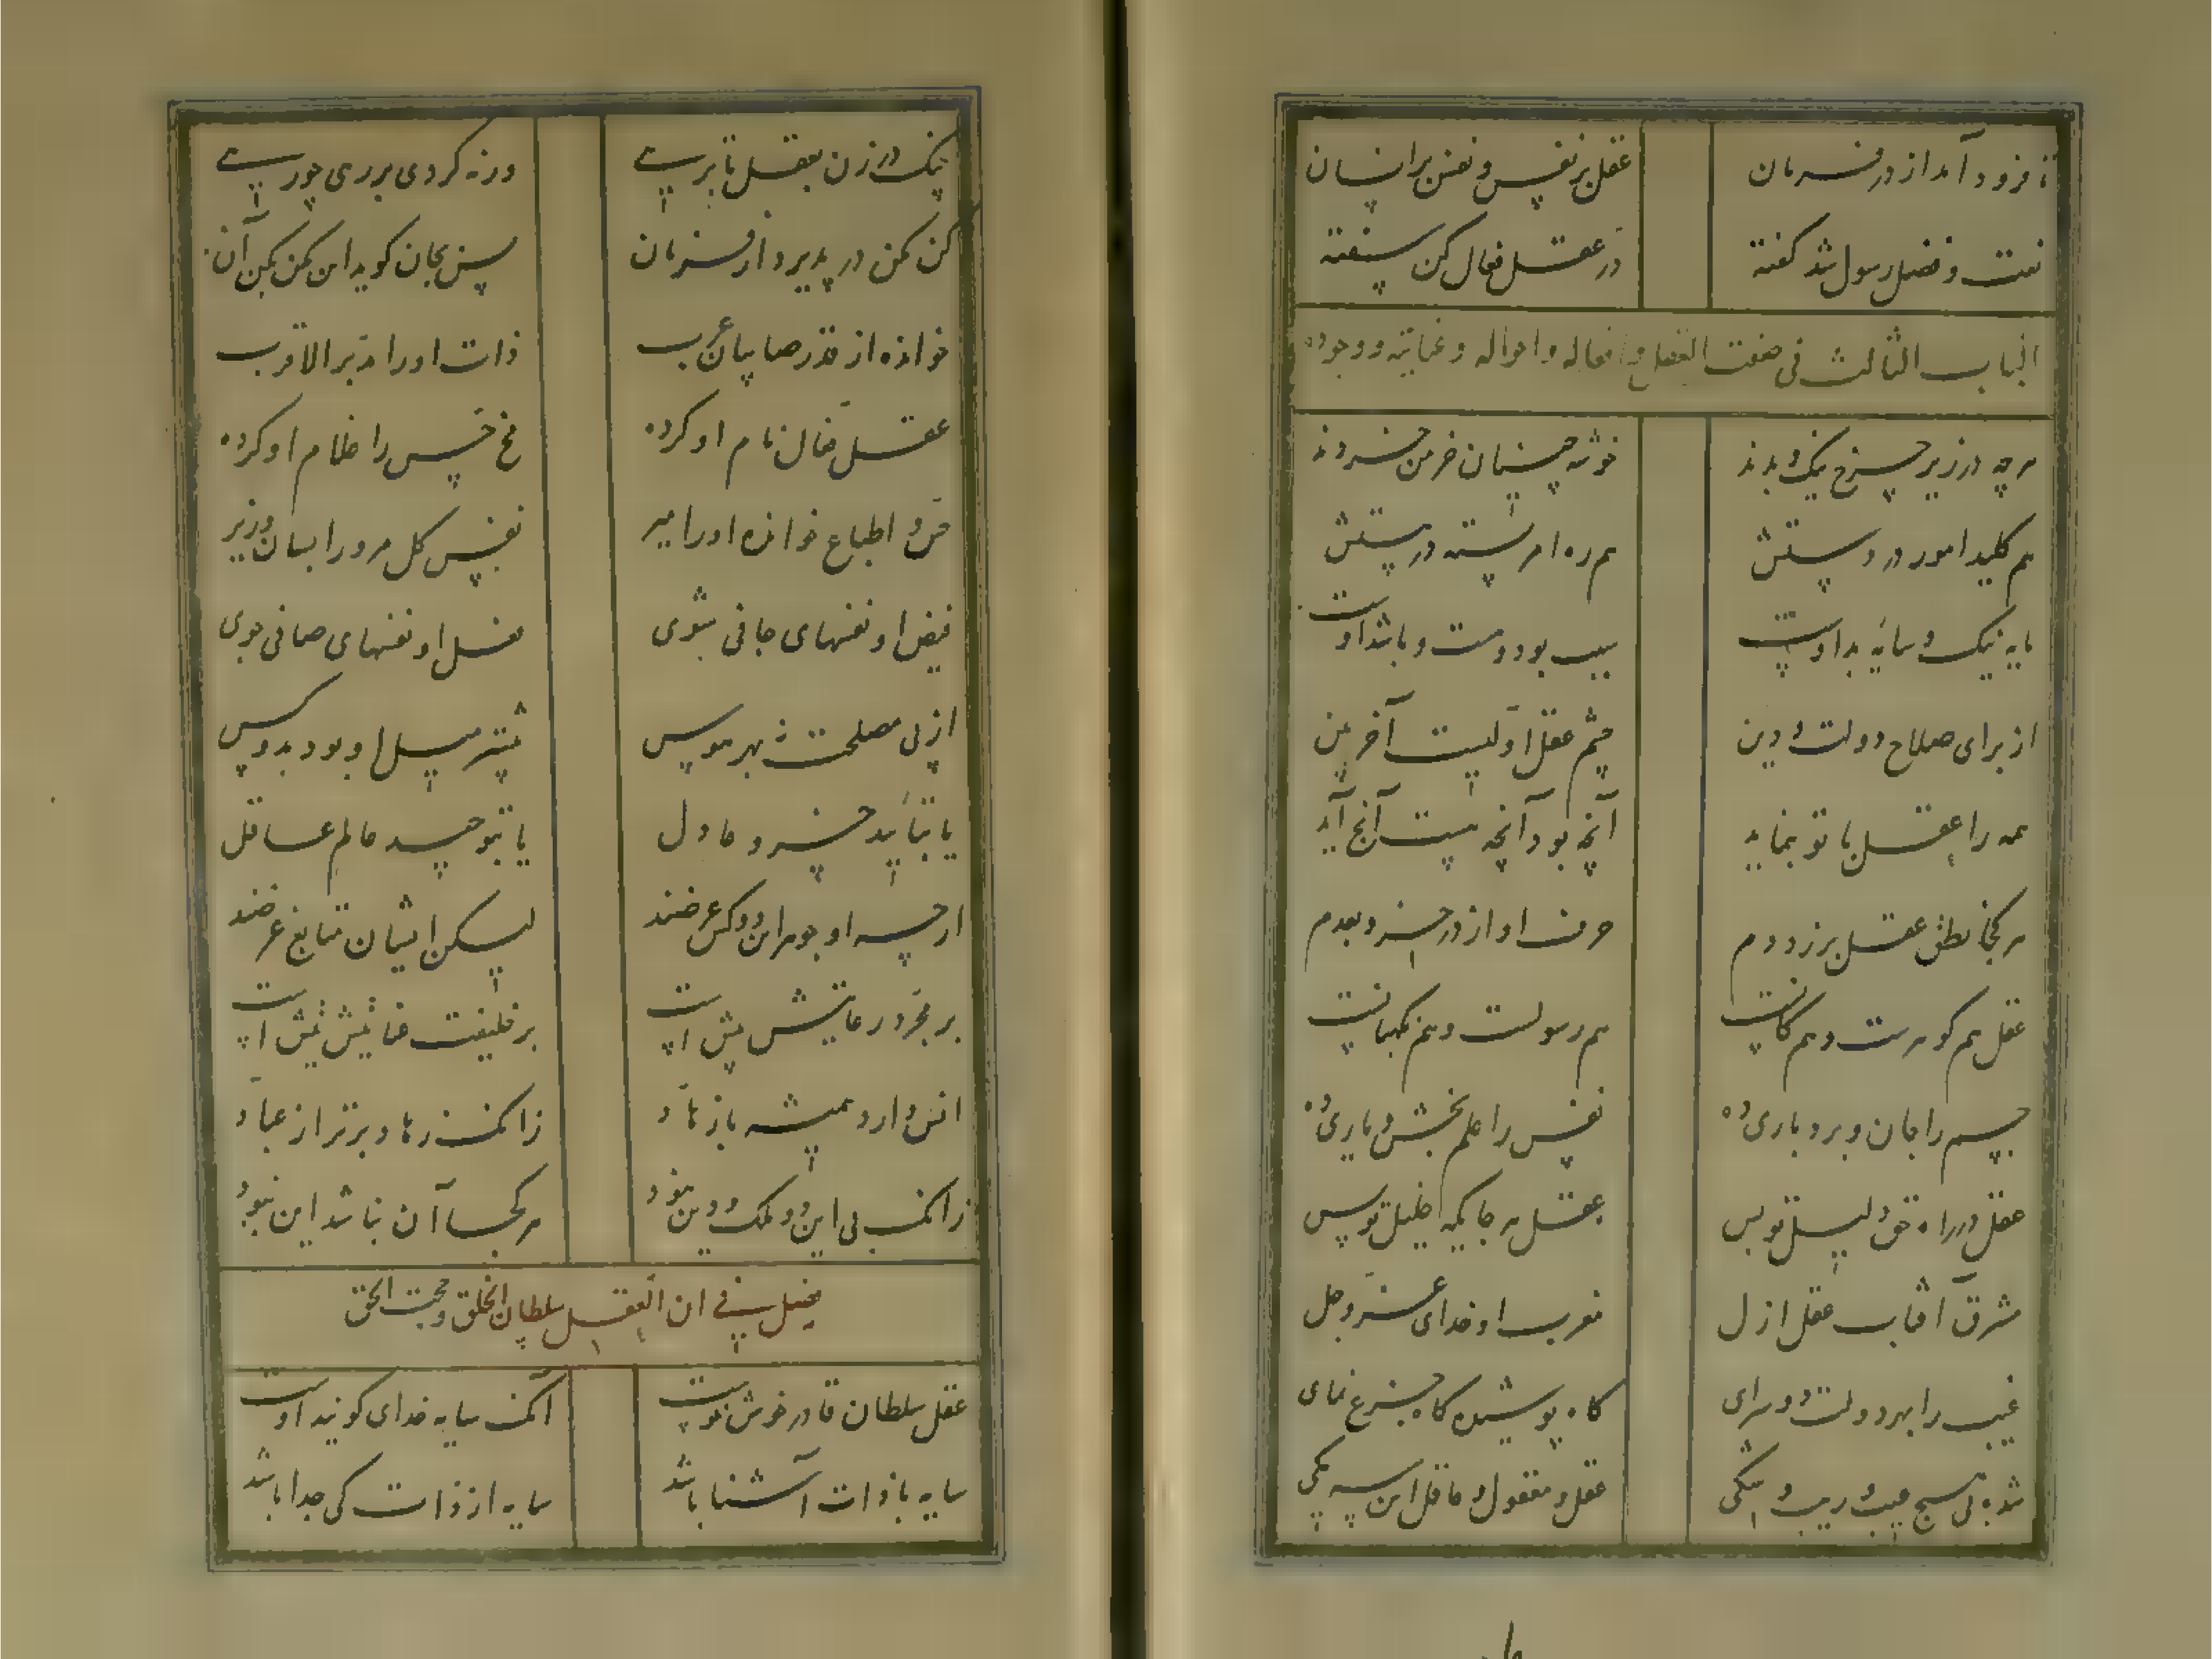 تا فرود آمد از در فرمان عقل بر نفس و نفس بر انسان
نعت و فضل رسول شد گفته در عقل فعال کن سفته
الباب الثالث فی صفت العقل و افعاله و احواله و غایته و وجوده
هرچه در زیر چرخ نیک و بدند خوشه چینان خرمن خردند
هم کلید امور در دستش هم ره امر بسته در هستش
مایه نیک و سایه بد اوست سبب بود و هست و باشد اوست
از برای صلاح دولت و دین چشم عقل اولیست آخر بین
همه را عقل با تو بنماید آنچه بود آنچه هست آنچ آید
هر کجا نطق عقل برزد دم حرف او از در خزد بعدم
عقل هم گوهرست و هم کانست هم رسولست و هم نگهبانست
جسم را جان و بردباری ده نفس را علم بخش و یاری ده
عقل در راه حق دلیل تو بس عقل هر جایگه خلیل تو بس
مشرق آفتاب عقل ازل مغرب او خدای عز و جل
غیب را بهر دولت دو سرای کاه پوشیده کاه چرغ نمای
شده بی هیچ عیب و ریب و شکی عقل و معقول و عاقل این سه یکی
چنک در زن بعقل تا برهی ورنه کردی بر ری چو رهی
کن مکن در پذیرد از فرمان پس بجان کوید این مکن بکن آن
خوانده از قدر صاحبان عرب ذات او را مدبر الاقرب
عقل فعال نام او کرده مخ حس را غلام او کرده
حس و اطباع خوانده او را میر نفس کل مرو را بسان وزیر
فیض او نفسهای جانی شوی فضل او نفسهای صافی جوی
از پی مصلحت نه بهر هوس بیشتر میل او بود بدو کس
یا بتایید خسرو عادل یا بتوحید عالم عاقل
ارچه او جوهر این دو کس عرضند لیکن ایشان متابع غرضند
بر مجرد رعایتش بیش است بر خلیفت عنایتش بیش است
انس دارد همیشه با زهاد زانک زهاد برتر از عباد
زانک بی این دو ملک و دین نبود هر کجا آن نباشد این نبود
فصل فی ان العقل سلطان الخلق و حجت الحق
عقل سلطان قادر خوش خوست آنک سایه خدای کویند اوست
سایه با ذات آشنا باشد سایه از ذات کی جدا باشد